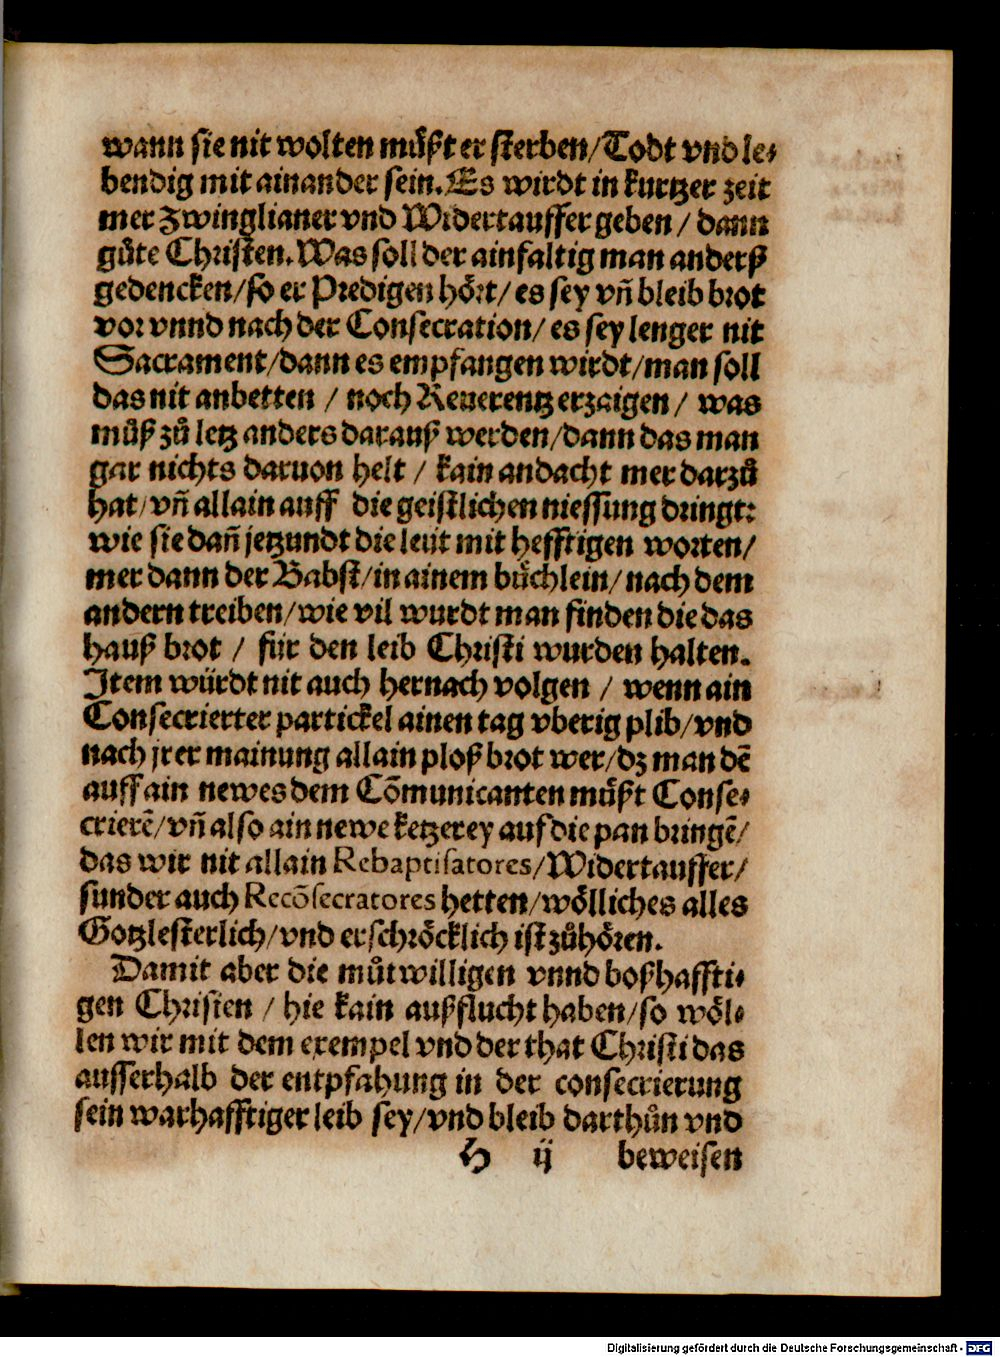 wann sie nit wolten můßt er sterben/Todt vnd le⸗
bendig mit ainander sein. Es wirdt in kurtzer zeit
mer Zwinglianer vnd Widertauffer geben / dann
gůte Christen. Was soll der ainfaltig man anderß
gedencken/so er Predigen hört/ es sey vñ bleib brot
vor vnnd nach der Consecration/ es sey lenger nit
Sacrament/dann es empfangen wirdt/man soll
das nit anbetten / noch Reuerentz erzaigen / was
můß zů letz anders darauß werden/dann das man
gar nichts daruon helt / kain andacht mer darzů
hat/vñ allain auff die geistlichen niessung dringt:
wie sie dañ jetzundt die leüt mit hefftigen worten/
mer dann der Babst/in ainem büchlein/nach dem
andern treiben/wie vil wurdt man finden die das
hauß brot / für den leib Christi wurden halten.
Item würdt nit auch hernach volgen / wenn ain
Consecrierter partickel ainen tag vberig plib/vnd
nach jrer mainung allain ploß brot wer/dz man dē
auff ain newes dem Cōmunicanten müßt Conse⸗
crierē/vñ also ain newe ketzerey auf die pan bringē/
das wir nit allain Rebaptisatores/Widertauffer/
sunder auch Recōsecratores hetten/wölliches alles
Gotzlesterlich/vnd erschröcklich ist zůhören.
Damit aber die můtwilligen vnnd boßhaffti⸗
gen Christen / hie kain außflucht haben/so wöl⸗
len wir mit dem exempel vnd der that Christi das
ausserhalb der entpfahung in der consecrierung
sein warhafftiger leib sey/vnd bleib darthůn vnd
H ij beweisen
Digitalisierung gefördert durch die Deutsche Forschungsgemeinschaft - DFG